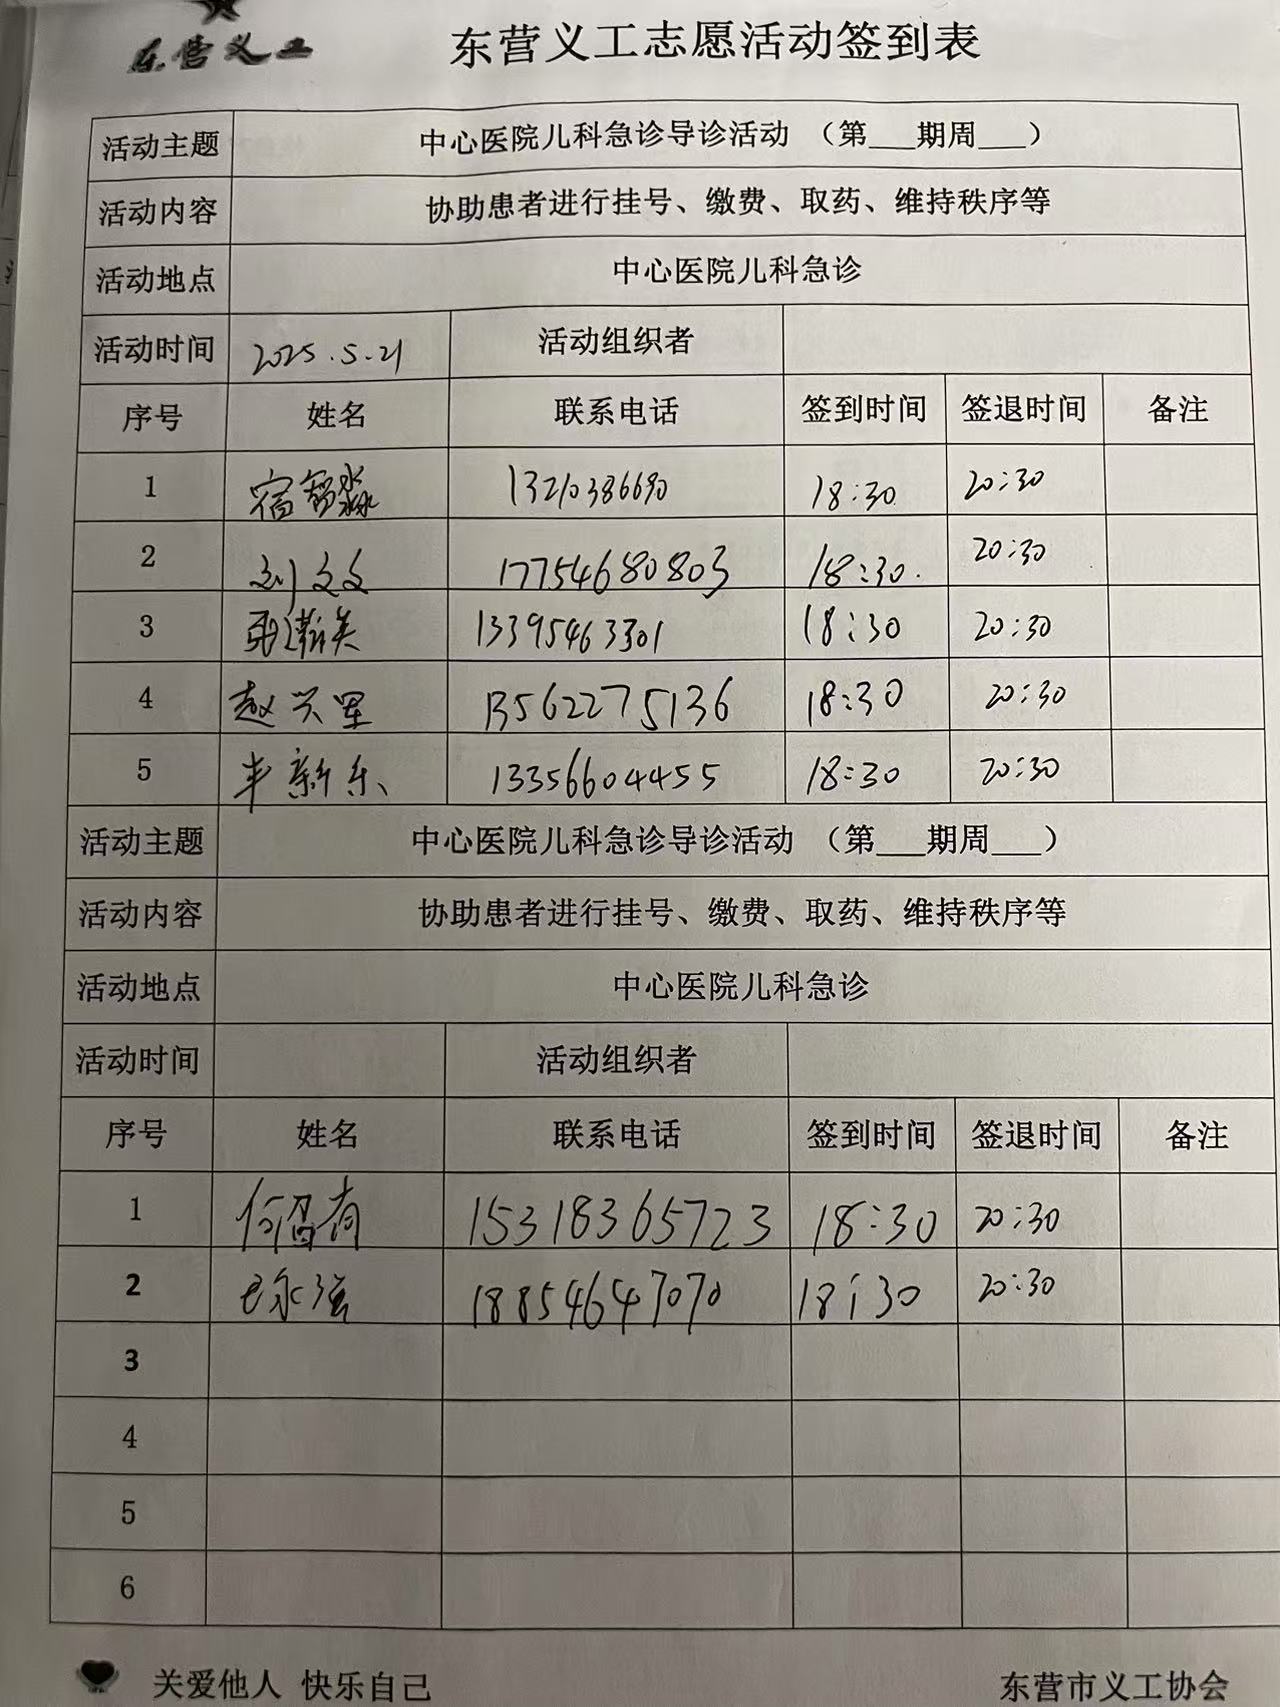 东营义工
东营义工志愿活动签到表
活动主题 中心医院儿科急诊导诊活动 （第___期周___）
活动内容 协助患者进行挂号、缴费、取药、维持秩序等
活动地点 中心医院儿科急诊
活动时间 2025.5.21 活动组织者
序号 姓名 联系电话 签到时间 签退时间 备注
1 宿智淼 13210386690 18:30 20:30
2 刘文文 17754680803 18:30. 20:30
3 美 13395463301 18:30 20:30
4 赵兴军 13562275136 18:30 20:30
5 丰新乐 13356604455 18:30 20:30
活动主题 中心医院儿科急诊导诊活动 （第___期周___）
活动内容 协助患者进行挂号、缴费、取药、维持秩序等
活动地点 中心医院儿科急诊
活动时间 活动组织者
序号 姓名 联系电话 签到时间 签退时间 备注
1 何 15318365723 18:30 20:30
2 永强 18854647070 18:30 20:30
3
4
5
6
关爱他人 快乐自己 东营市义工协会